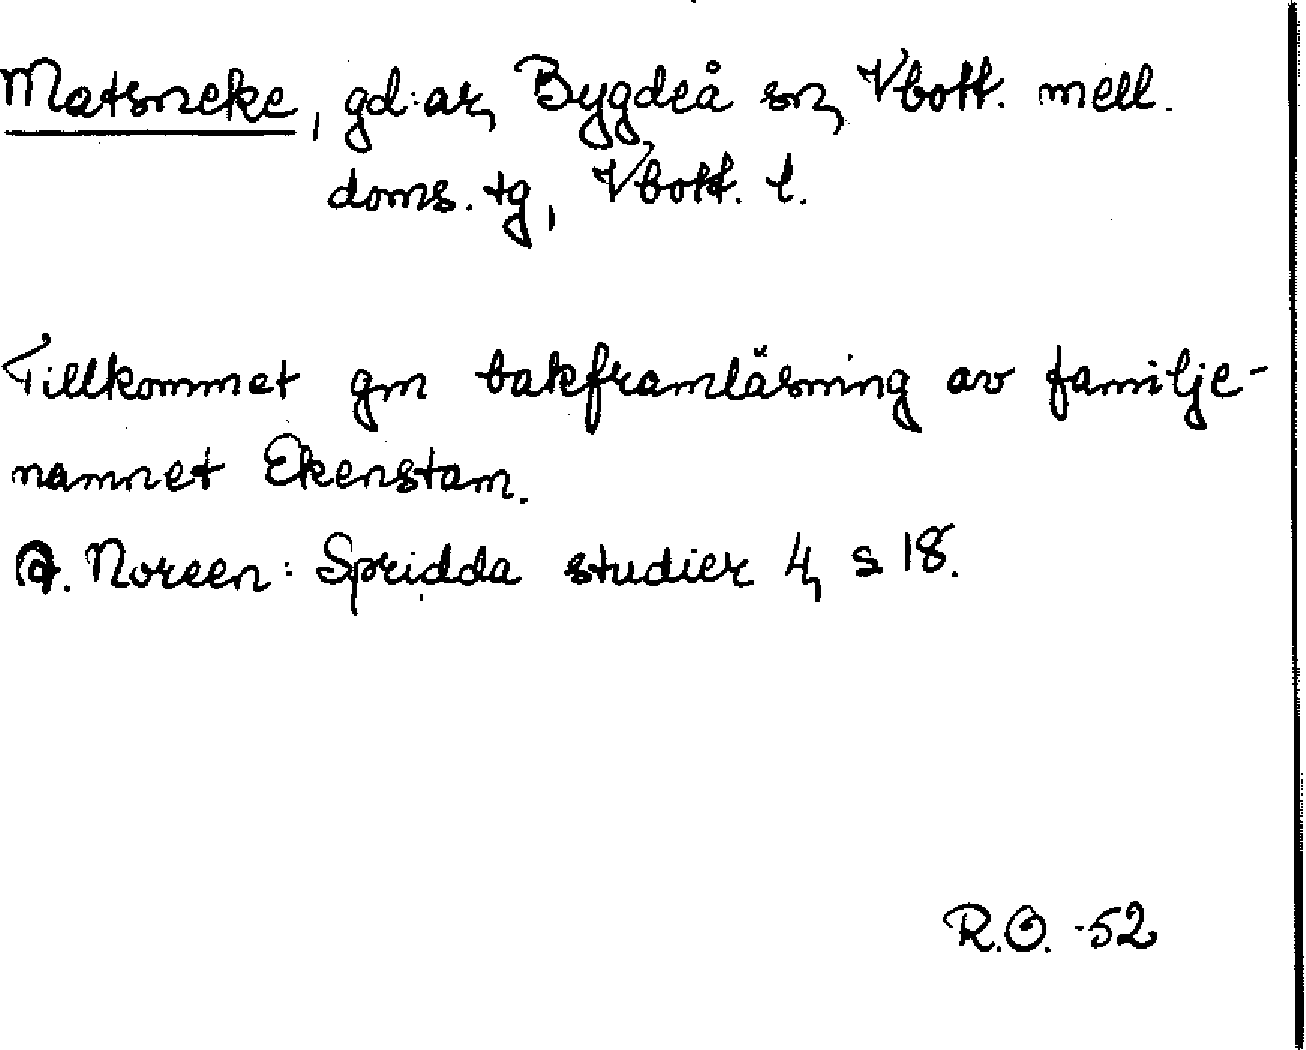 Matsneke, gd:ar, Bygdeå sn, Vbott. mell.
doms. tg, Vbott. l.
Tillkommet gm bakframläsning av familje-
namnet Ekenstam.
A. Noreen: Spridda studier 4, s 18.
R.O. -52